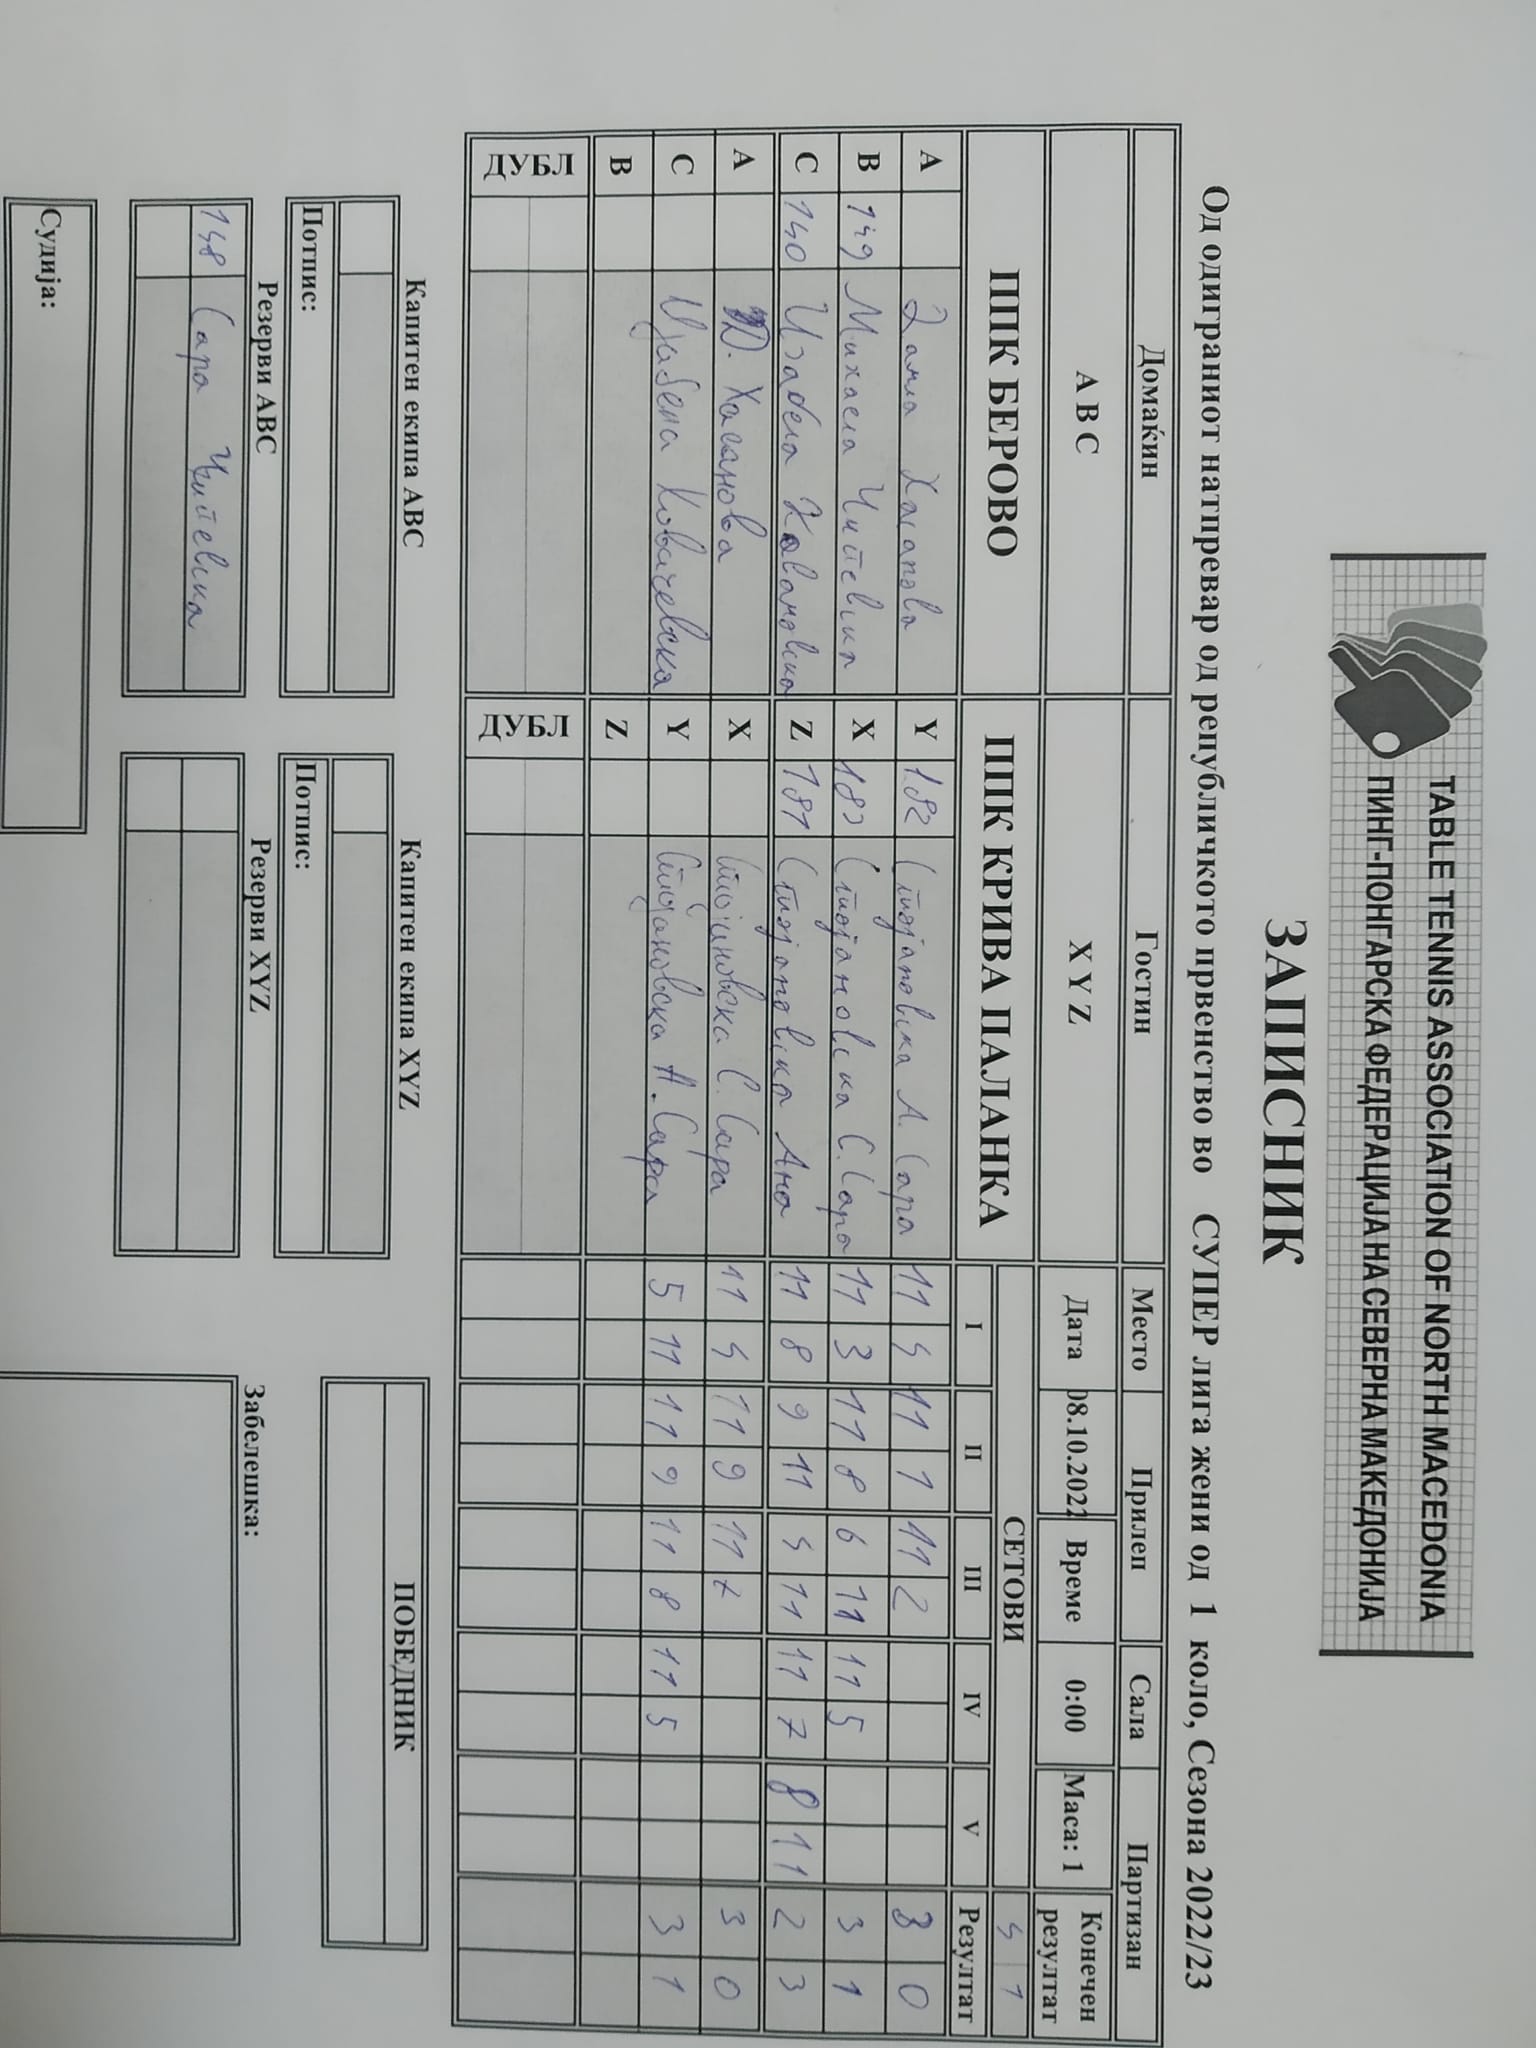 TABLE TENNIS ASSOCIATION OF NORTH MACEDONIA
ПИНГ-ПОНГАРСКА ФЕДЕРАЦИЈА НА СЕВЕРНА МАКЕДОНИЈА
ЗАПИСНИК
Од одиграниот натпревар од републичкото првенство во СУПЕР лига жени од 1 коло, Сезона 2022/23
Домаќин Гостин Место Прилеп Сала Партизан
A B C X Y Z Дата 08.10.2022 Време 0:00 Маса: 1 Конечен резултат
ППК БЕРОВО ППК КРИВА ПАЛАНКА СЕТОВИ 4 1
I II III IV V Резултат
A Y 182 Стојановска А. Сара 11 4 11 1 11 2 3 0
B 149 Михаела Читевска X 183 Стојановска С. Сара 11 3 11 8 6 11 11 5 3 1
C 140 Изабела Z 181 Стојановска Ана 11 8 9 11 4 11 11 7 8 11 2 3
A Хасанова X Стојановска С. Сара 11 4 11 9 11 7 3 0
C Ковачевска Y Стојановска А. Сара 5 11 11 9 11 8 11 5 3 1
B Z
ДУБЛ ДУБЛ
Капитен екипа ABC Капитен екипа XYZ ПОБЕДНИК
Потпис: Потпис:
Резерви ABC Резерви XYZ Забелешка:
148 Сара Читевска
Судија: